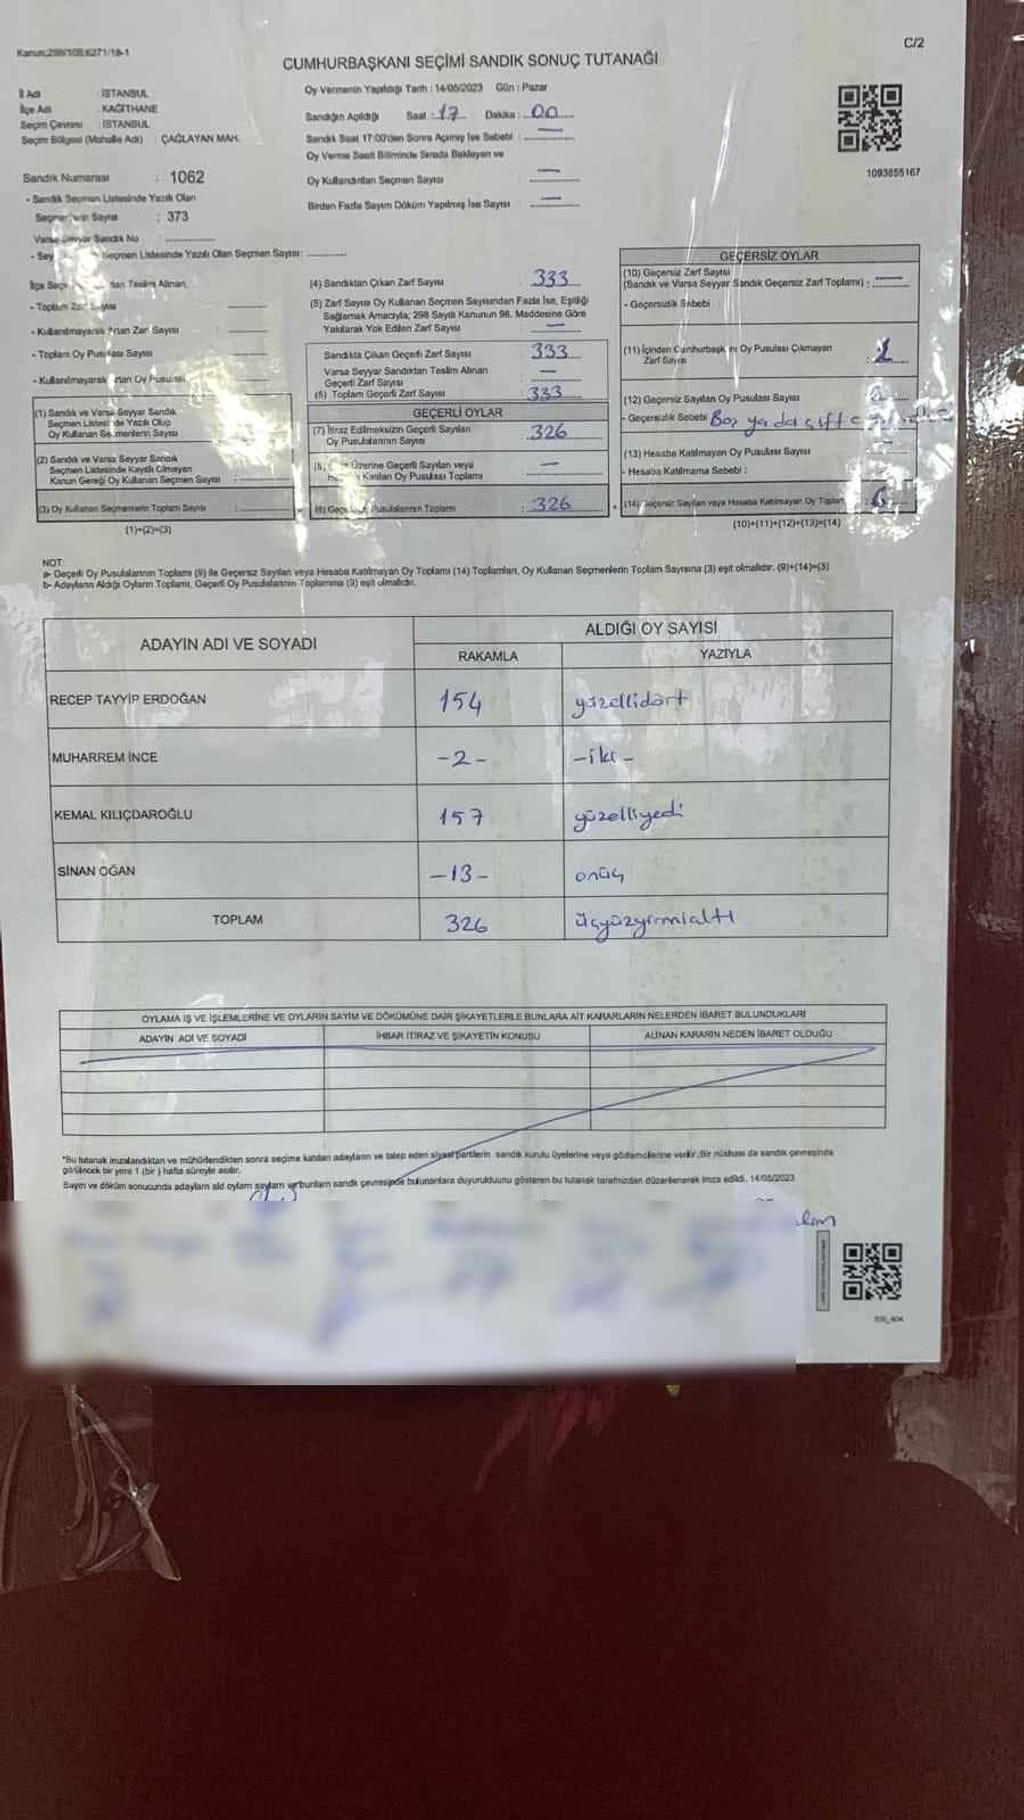 Kanun:298/108;6271/18-1
C/2
CUMHURBAŞKANI SEÇİMİ SANDIK SONUÇ TUTANAĞI
İl Adı : İSTANBUL
İlçe Adı : KAĞITHANE
Seçim Çevresi : İSTANBUL
Seçim Bölgesi (Mahalle Adı) : ÇAĞLAYAN MAH.
Oy Vermenin Yapıldığı Tarih : 14/05/2023 Gün : Pazar
Sandığın Açıldığı Saat : 17 Dakika : 00
Sandık Saat 17:00'den Sonra Açılmış İse Sebebi : —
Oy Verme Saati Bitiminde Sırada Bekleyen ve
Oy Kullandırılan Seçmen Sayısı : —
Birden Fazla Sayım Döküm Yapılmış İse Sayısı : —
1093855167
Sandık Numarası : 1062
- Sandık Seçmen Listesinde Yazılı Olan
Seçmenlerin Sayısı : 373
Varsa Seyyar Sandık No
- Sey Seçmen Listesinde Yazılı Olan Seçmen Sayısı:
İlçe Seç dan Teslim Alınan,
- Toplam Zarf Sayısı
- Kullanılmayarak Artan Zarf Sayısı
- Toplam Oy Pusulası Sayısı
- Kullanılmayarak Artan Oy Pusulası
(1) Sandık ve Varsa Seyyar Sandık
Seçmen Listesinde Yazılı Olup
Oy Kullanan Seçmenlerin Sayısı
(2) Sandık ve Varsa Seyyar Sandık
Seçmen Listesinde Kayıtlı Olmayan
Kanun Gereği Oy Kullanan Seçmen Sayısı :
(3) Oy Kullanan Seçmenlerin Toplam Sayısı :
(1)+(2)=(3)
(4) Sandıktan Çıkan Zarf Sayısı 333
(5) Zarf Sayısı Oy Kullanan Seçmen Sayısından Fazla İse, Eşitliği
Sağlamak Amacıyla; 298 Sayılı Kanunun 98. Maddesine Göre
Yakılarak Yok Edilen Zarf Sayısı —
Sandıkta Çıkan Geçerli Zarf Sayısı 333
Varsa Seyyar Sandıktan Teslim Alınan
Geçerli Zarf Sayısı —
(6) Toplam Geçerli Zarf Sayısı 333
GEÇERLİ OYLAR
(7) İtiraz Edilmeksizin Geçerli Sayılan
Oy Pusulalarının Sayısı 326
Üzerine Geçerli Sayılan veya
Katılan Oy Pusulası Toplamı —
(9) Geçerli Pusulalarının Toplamı 326
GEÇERSİZ OYLAR
(10) Geçersiz Zarf Sayısı
(Sandık ve Varsa Seyyar Sandık Geçersiz Zarf Toplamı) : —
- Geçersizlik Sebebi :
(11) İçinden Cumhurbaşkanı Oy Pusulası Çıkmayan
Zarf Sayısı
(12) Geçersiz Sayılan Oy Pusulası Sayısı
- Geçersizlik Sebebi Boş ya da çift
(13) Hesaba Katılmayan Oy Pusulası Sayısı
- Hesaba Katılmama Sebebi :
(14) Geçersiz Sayılan veya Hesaba Katılmayan Oy Toplam
(10)+(11)+(12)+(13)=(14)
NOT:
a- Geçerli Oy Pusulalarının Toplamı (9) ile Geçersiz Sayılan veya Hesaba Katılmayan Oy Toplamı (14) Toplamları, Oy Kullanan Seçmenlerin Toplam Sayısına (3) eşit olmalıdır. (9)+(14)=(3)
b- Adayların Aldığı Oyların Toplamı, Geçerli Oy Pusulalarının Toplamına (9) eşit olmalıdır.
ADAYIN ADI VE SOYADI
ALDIĞI OY SAYISI
RAKAMLA YAZIYLA
RECEP TAYYİP ERDOĞAN 154 yüzellidört
MUHARREM İNCE -2- -iki-
KEMAL KILIÇDAROĞLU 157 yüzelliyedi
SİNAN OĞAN -13- onüç
TOPLAM 326 üçyüzyirmialtı
OYLAMA İŞ VE İŞLEMLERİNE VE OYLARIN SAYIM VE DÖKÜMÜNE DAİR ŞİKAYETLERLE BUNLARA AİT KARARLARIN NELERDEN İBARET BULUNDUKLARI
ADAYIN ADI VE SOYADI İHBAR İTİRAZ VE ŞİKAYETİN KONUSU ALINAN KARARIN NEDEN İBARET OLDUĞU
*Bu tutanak imzalandıktan ve mühürlendikten sonra seçime katılan adayların ve talep eden siyasi partilerin sandık kurulu üyelerine veya gözlemcilerine verilir. Bir nüshası da sandık çevresinde
görülecek bir yere 1 (bir) hafta süreyle asılır.
Sayım ve döküm sonucunda adayların aldı oyların sayıları ve bunların sandık çevresinde bulunanlara duyurulduunu gösteren bu tutanak tarafımızdan düzenlenerek imza edildi. 14/05/2023